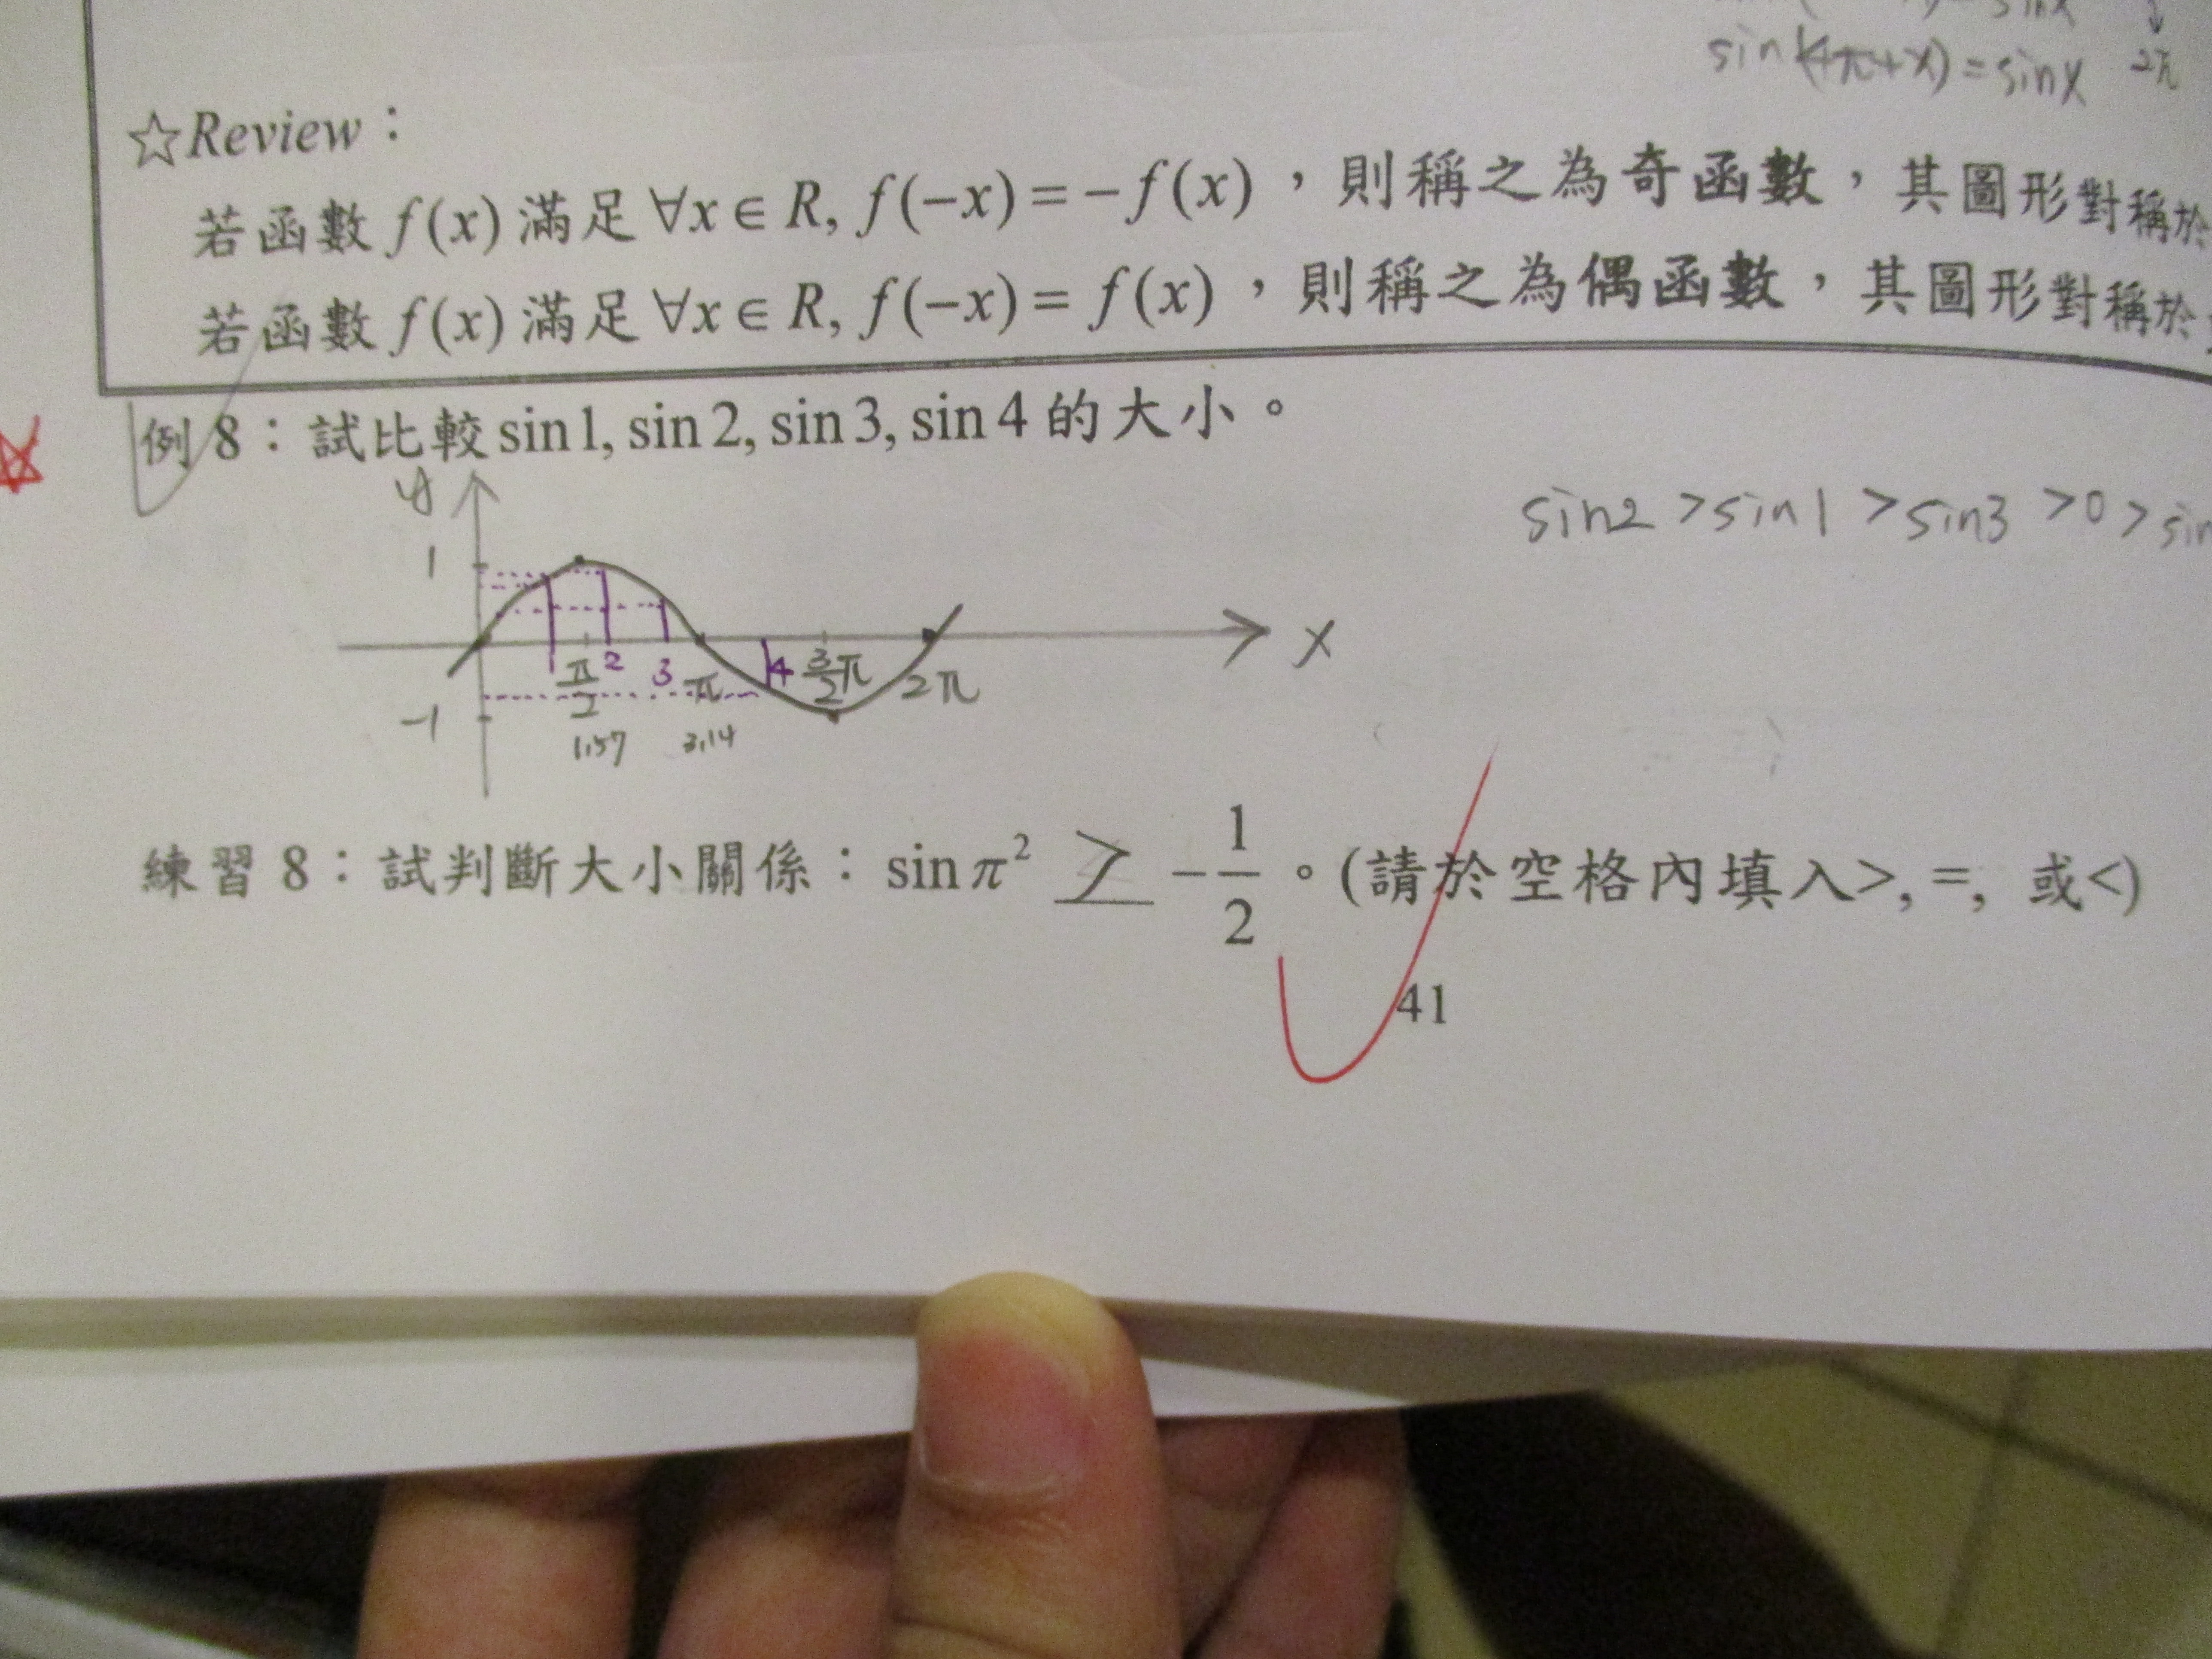 sin(4π+x)=sinx 2π
☆Review：
若函數 f(x) 滿足 ∀x∈R, f(−x)=−f(x)，則稱之為奇函數，其圖形對稱於
若函數 f(x) 滿足 ∀x∈R, f(−x)=f(x)，則稱之為偶函數，其圖形對稱於
例 8：試比較 sin1, sin2, sin3, sin4 的大小。
sin2 >sin1 >sin3 >0 > sin
y
1
x
π/2 2 3 π 4 3/2π 2π
-1
1.57 3.14
練習 8：試判斷大小關係：sin π² > −1/2。(請於空格內填入>, =, 或<)
41